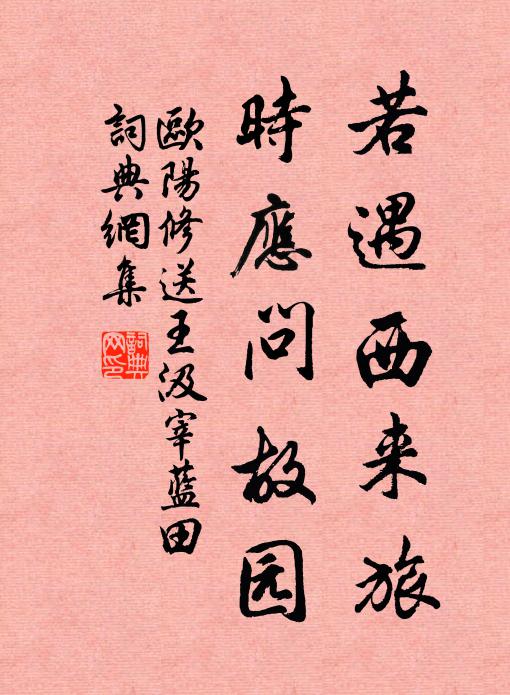 若遇西来旅
時應問故园
歐陽修送王汲宰藍田
詞典網集
詞典网印